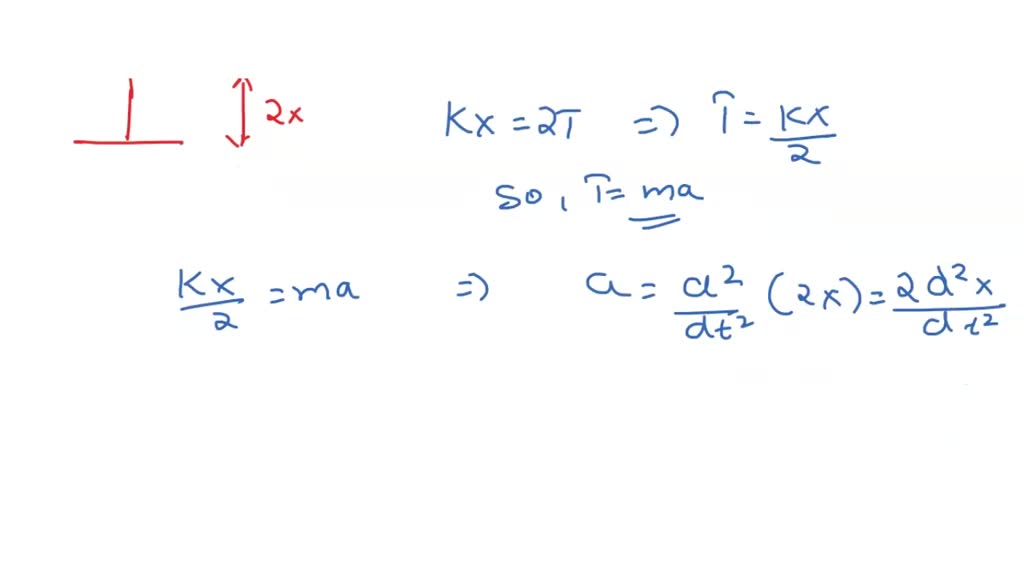 2x
Kx = 2T => T = Kx/2
So, T = ma
Kx/2 = ma => a = d²/dt² (2x) = 2d²x/dt²